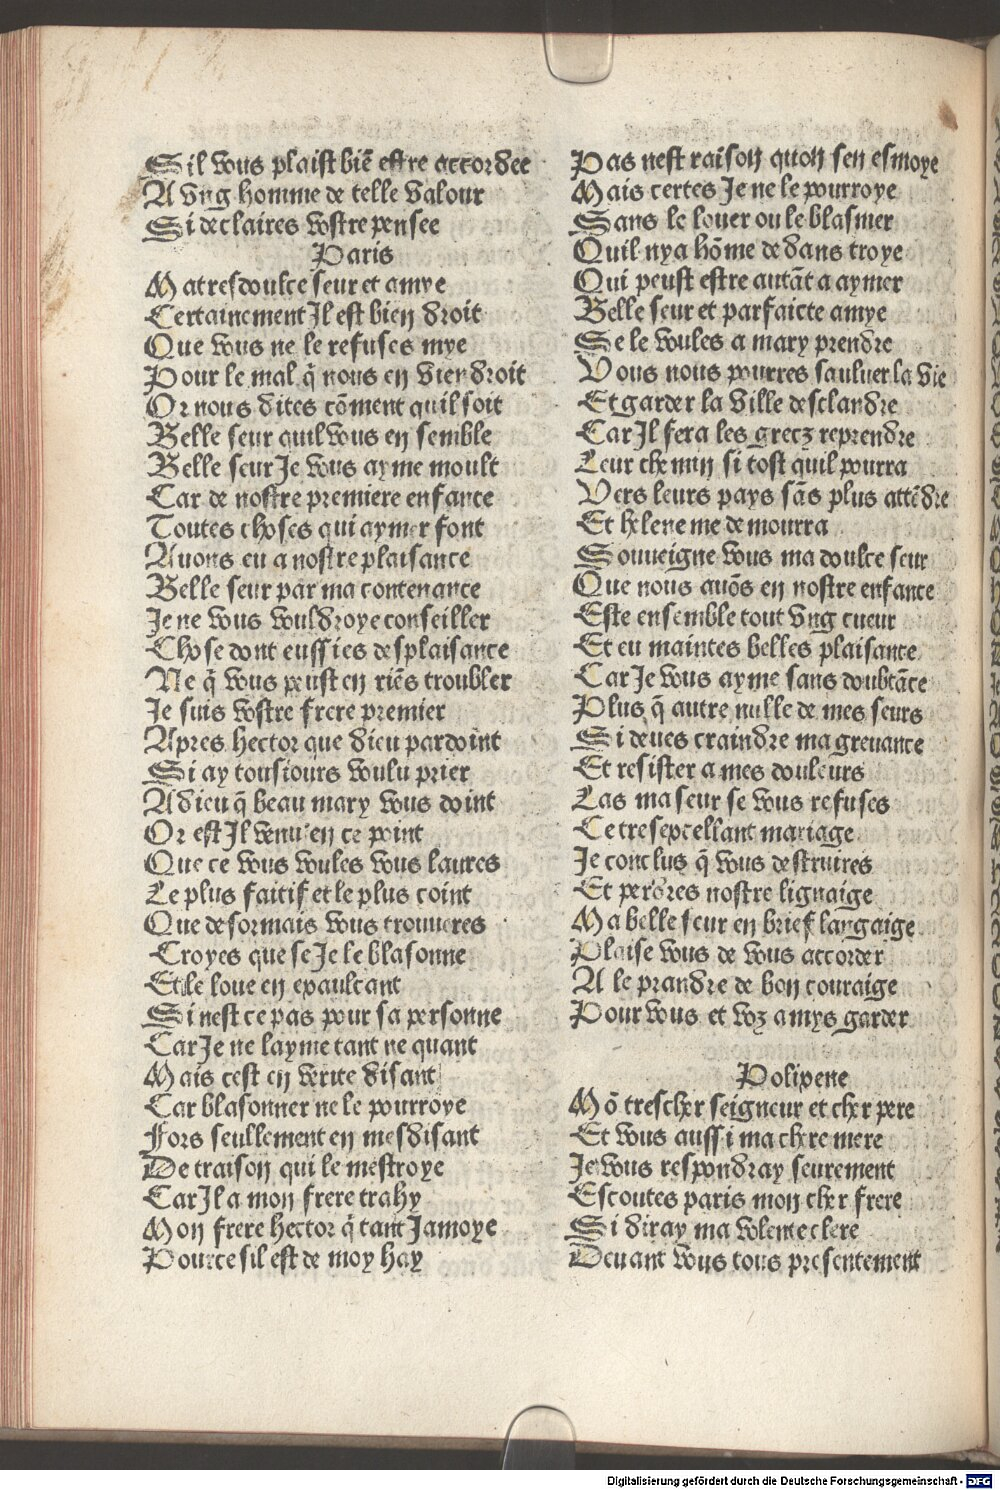 Sil vous plaist biē estre accordee
A vng homme de telle valour
Si declaires vostre pensee
Paris
Ma tresdoulce seur et amye
Certainement Il est bien droit
Que vous ne le refuses mye
Pour le mal q̄ nous en viendroit
Or nous dites cōment quil soit
Belle seur quil vous en semble
Belle seur Je vous ayme moult
Car de nostre premiere enfance
Toutes choses qui aymer font
Auons eu a nostre plaisance
Belle seur par ma contenance
Je ne vous vouldroye conseiller
Chose dont eussies desplaisance
Ne q̄ vous peust en riēs troubler
Je suis vostre frere premier
Apres hector que dieu pardoint
Si ay tousiours voulu prier
A dieu q̄ beau mary vous doint
Or est Il venu en ce point
Que ce vous voules vous laures
Le plus faitif et le plus coint
Que desormais vous trouueres
Croyes que se Je le blasonne
Et le loue en exaulcant
Si nest ce pas pour sa personne
Car Je ne layme tant ne quant
Mais cest en verite disant
Car blasonner ne le pourroye
Fors seullement en mesdisant
De traison qui le mestroye
Car Il a mon frere trahy
Mon frere hector q̄ tant Jamoye
Pource sil est de moy hay
Pas nest raison quon sen esmoye
Mais certes Je ne le pourroye
Sans le louer ou le blasmer
Quil nya hōme dedans troye
Qui peust estre autāt a aymer
Belle seur et parfaicte amye
Se le voules a mary prendre
Vous nous pourres sauluer la vie
Et garder la ville desclandre
Car Il fera les grecz reprendre
Leur chemin si tost quil pourra
Vers leurs pays sās plus attēdre
Et helene me demourra
Souueigne vous ma doulce seur
Que nous auōs en nostre enfance
Este ensemble tout vng cueur
Et eu maintes belles plaisance
Car Je vous ayme sans doubtāce
Plus q̄ autre nulle de mes seurs
Si deues craindre ma greuance
Et resister a mes douleurs
Las ma seur se vous refuses
Ce tresexcellant mariage
Je conclus q̄ vous destruires
Et perdres nostre lignaige
Ma belle seur en brief langaige
Plaise vous de vous accorder
A le prandre de bon couraige
Pour vous et voz amys garder
Polixene
Mō trescher seigneur et cher pere
Et vous aussi ma chere mere
Je vous respondray seurement
Escoutes paris mon cher frere
Si diray ma volente clere
Deuant vous tous presentement
Digitalisierung gefördert durch die Deutsche Forschungsgemeinschaft - DFG